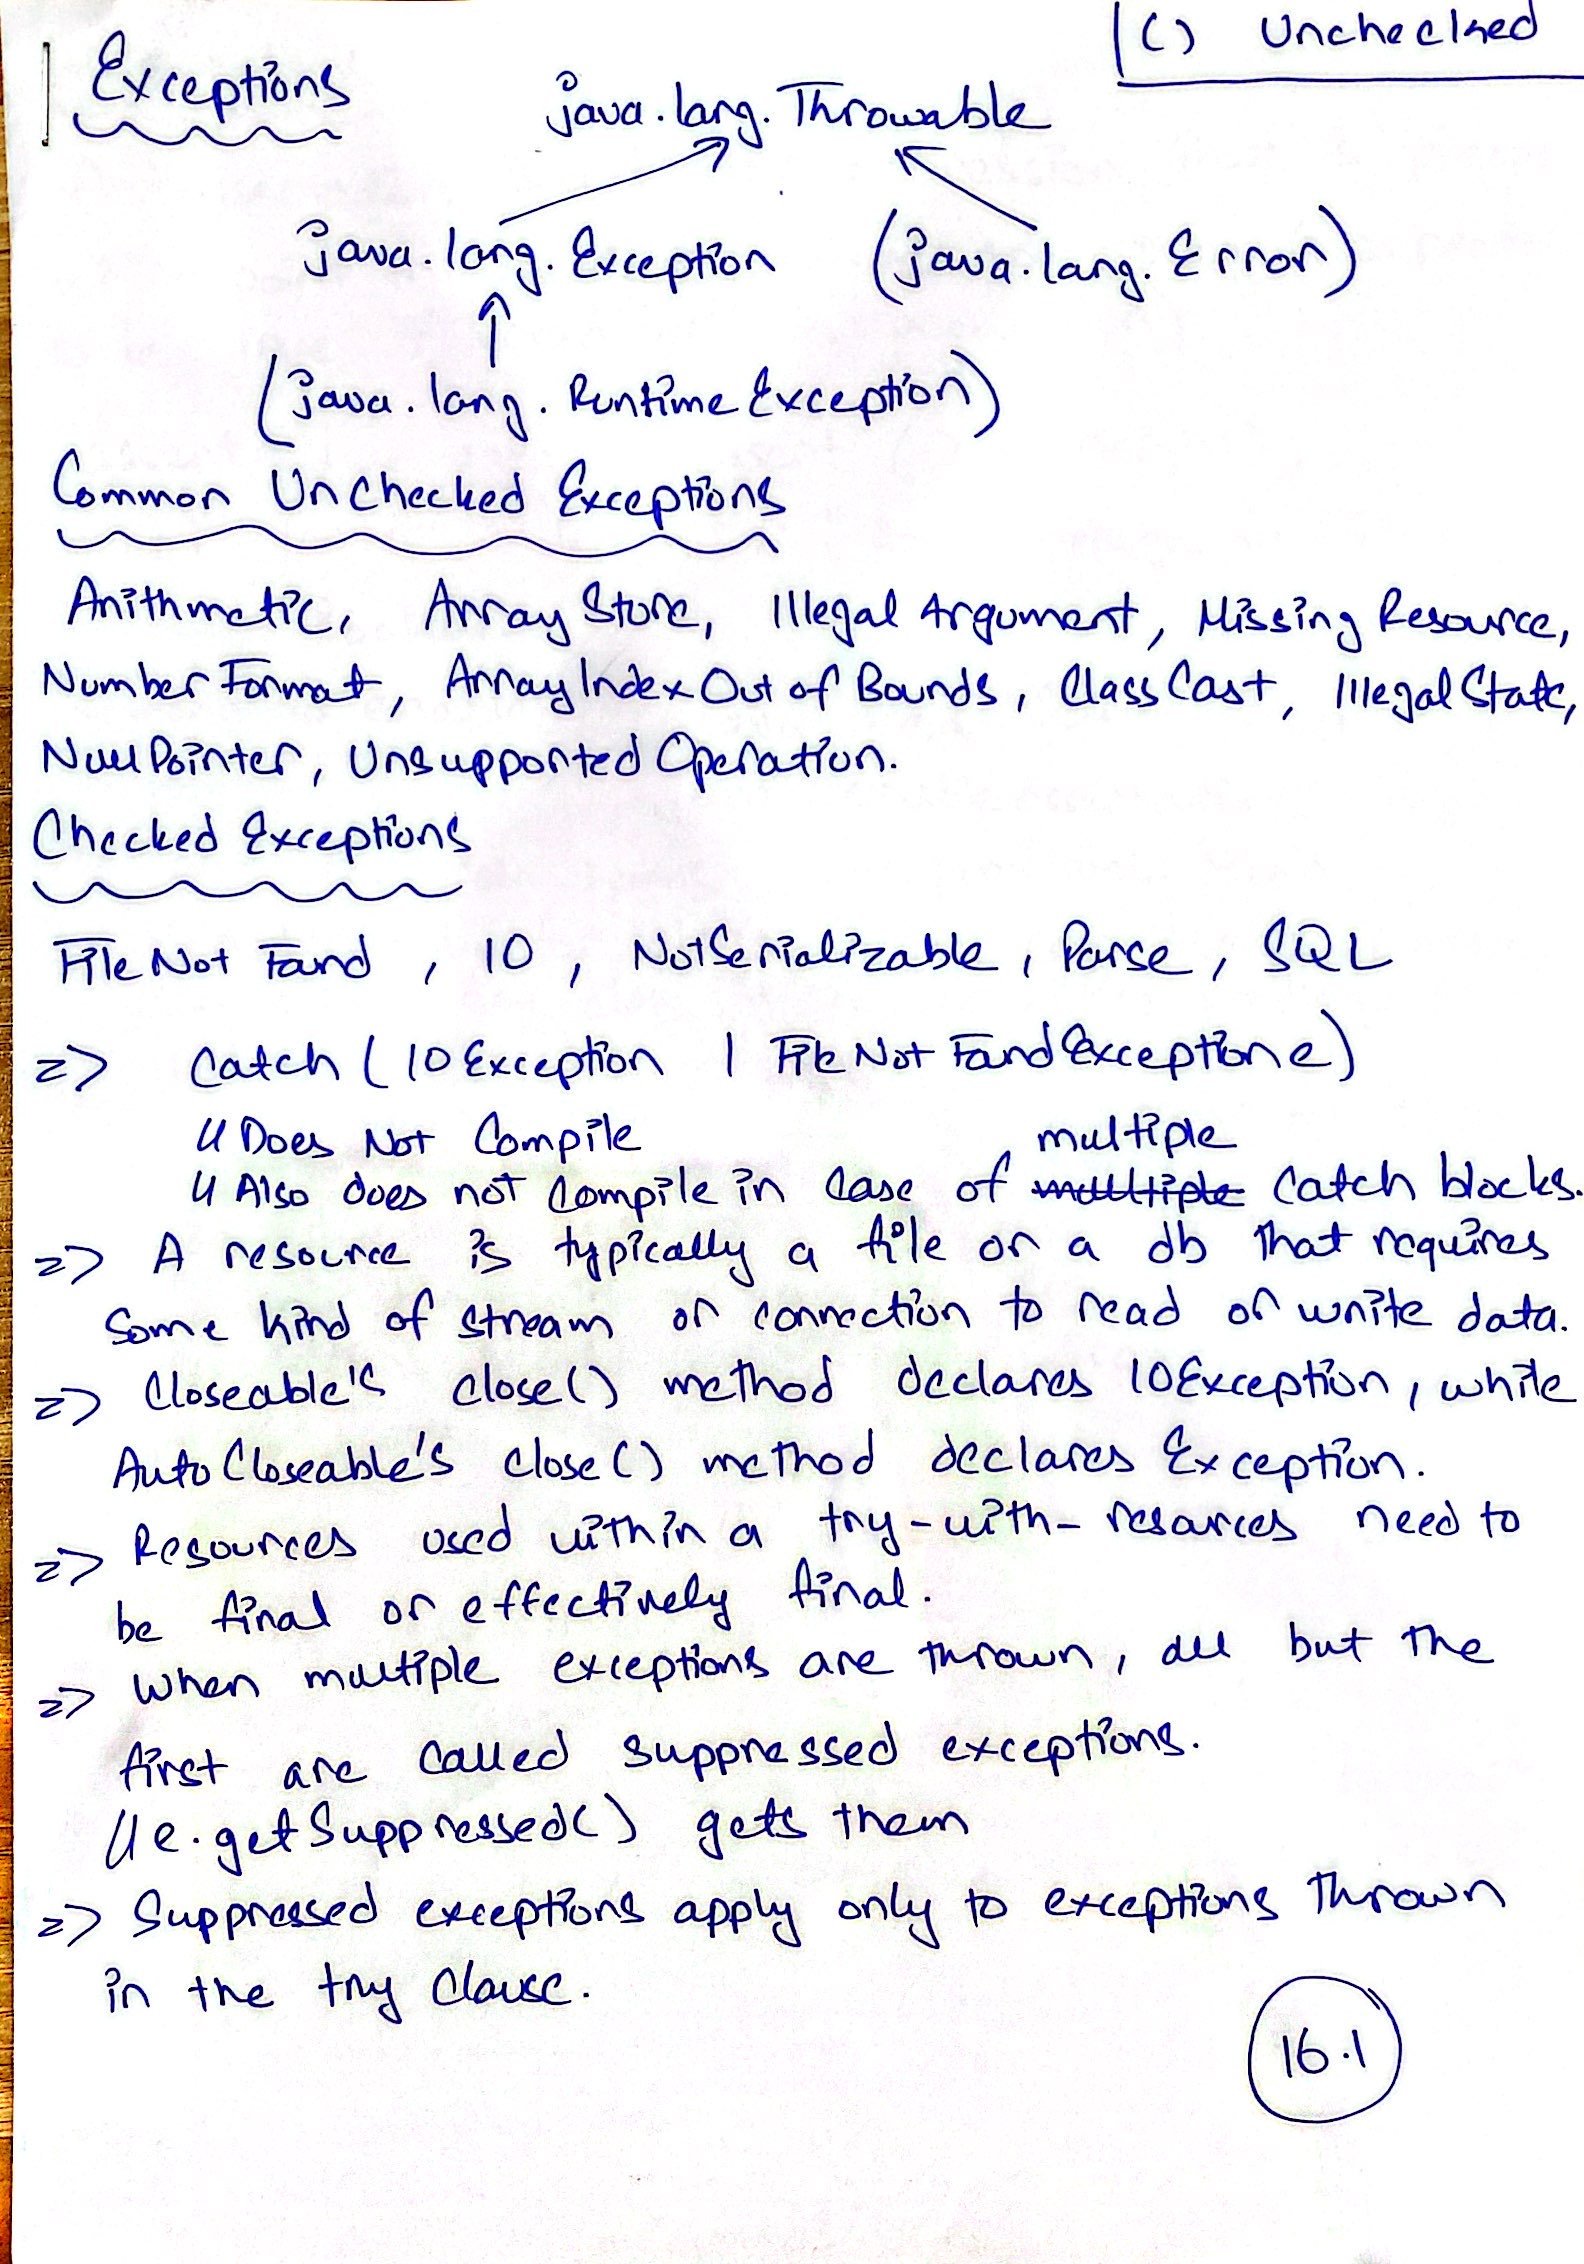 () Unchecked
Exceptions
java.lang.Throwable
java.lang.Exception (java.lang.Error)
(java.lang.RuntimeException)
Common Unchecked Exceptions
Arithmetic, ArrayStore, Illegal Argument, Missing Resource,
NumberFormat, ArrayIndexOutofBounds, ClassCast, IllegalState,
NullPointer, Unsupported Operation.
Checked Exceptions
File Not Found, IO, NotSerializable, Parse, SQL
=> Catch (IOException | File Not FoundException e)
// Does Not Compile
multiple
// Also does not compile in case of multiple catch blocks.
=> A resource is typically a file or a db that requires
some kind of stream or connection to read or write data.
=> Closeable's close() method declares IOException, while
AutoCloseable's close() method declares Exception.
=> Resources used within a try-with-resources need to
be final or effectively final.
=> When multiple exceptions are thrown, all but the
first are called suppressed exceptions.
// e.getSuppressed() gets them
=> Suppressed exceptions apply only to exceptions thrown
in the try clause.
16.1